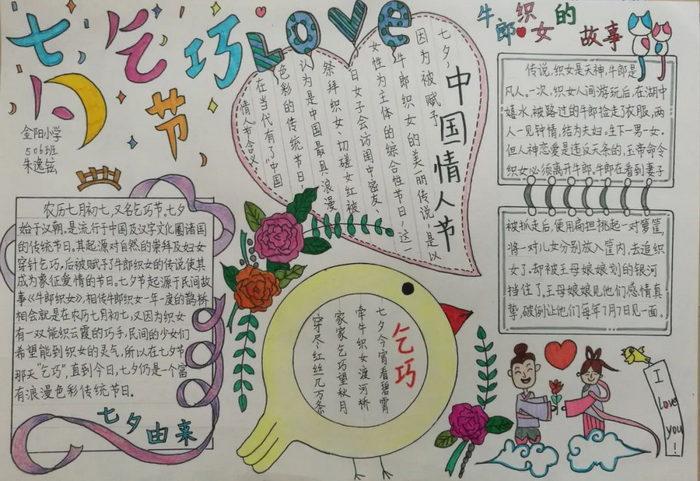 七夕乞巧节
LOVE
金阳小学
506班
朱逸铉
牛郎织女的故事
传说,织女是天神,牛郎是
凡人。一次,织女人间游玩后,在湖中
嬉水,被路过的牛郎捡走了衣服,两
人一见钟情,结为夫妇,生下一男一女。
但人神恋爱是违反天条的,玉帝命令
织女必须离开牛郎,牛郎在看到妻子
被抓走后,使用扁担挑起一对箩筐,
将一对儿女分别放入筐内,去追织
女了,却被王母娘娘划的银河
挡住了。王母娘娘见他们感情真
挚,破例让他们每年7月7日见一面。
中国情人节
七夕
因为被赋予
牛郎织女的美丽传说,是以
女性为主体的综合性节日,这一
日女子会访闺中密友
祭拜织女、切磋女红被
认为是中国最具浪漫
色彩的传统节日
在当代有了中国
情人节含义
农历七月初七,又名乞巧节,七夕
始于汉朝,是流行于中国及汉字文化圈诸国
的传统节日,其起源对自然的崇拜及妇女
穿针乞巧,后被赋予了牛郎织女的传说使其
成为象征爱情的节日。七夕节起源于民间故
事《牛郎织女》,相传牛郎织女一年一度的鹊桥
相会就是在农历七月初七,又因为织女
有一双能织云霞的巧手,民间的少女们
希望能到织女的灵气,所以在七夕节
那天"乞巧",直到今日,七夕仍是一个富
有浪漫色彩传统节日。
七夕由来
乞巧
七夕今宵看碧霄
牵牛织女渡河桥
家家乞巧望秋月
穿尽红丝几万条
I love you!